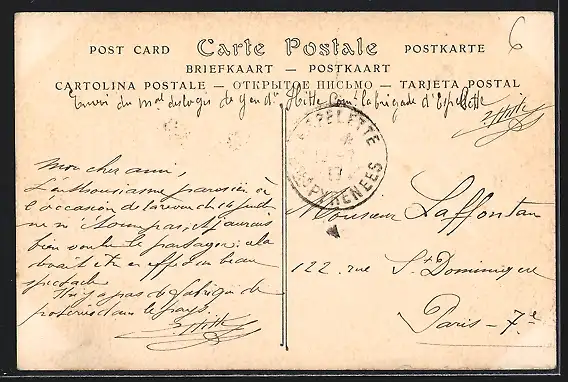 POST CARD Carte Postale POSTKARTE
BRIEFKAART — POSTKAART
CARTOLINA POSTALE — ОТКРЫТОЕ ПИСЬМО — TARJETA POSTAL
Envoi du Mal des logis de Gend. Hitte Comt la brigade d'Espelette
6
Hitte
ESPELETTE
PYRENEES
Mon cher ami,
L'enthousiasme parisien à
l'occasion de la revue du 14 Juillet
ne m'étonne pas, et j'aurais
bien voulu le partager; cela
devait être en effet un beau
spectacle.
Il n'y a pas de fabrique de
poteries dans le pays.
Hitte
Monsieur Laffontan
122, rue St Dominique
Paris - 7.e